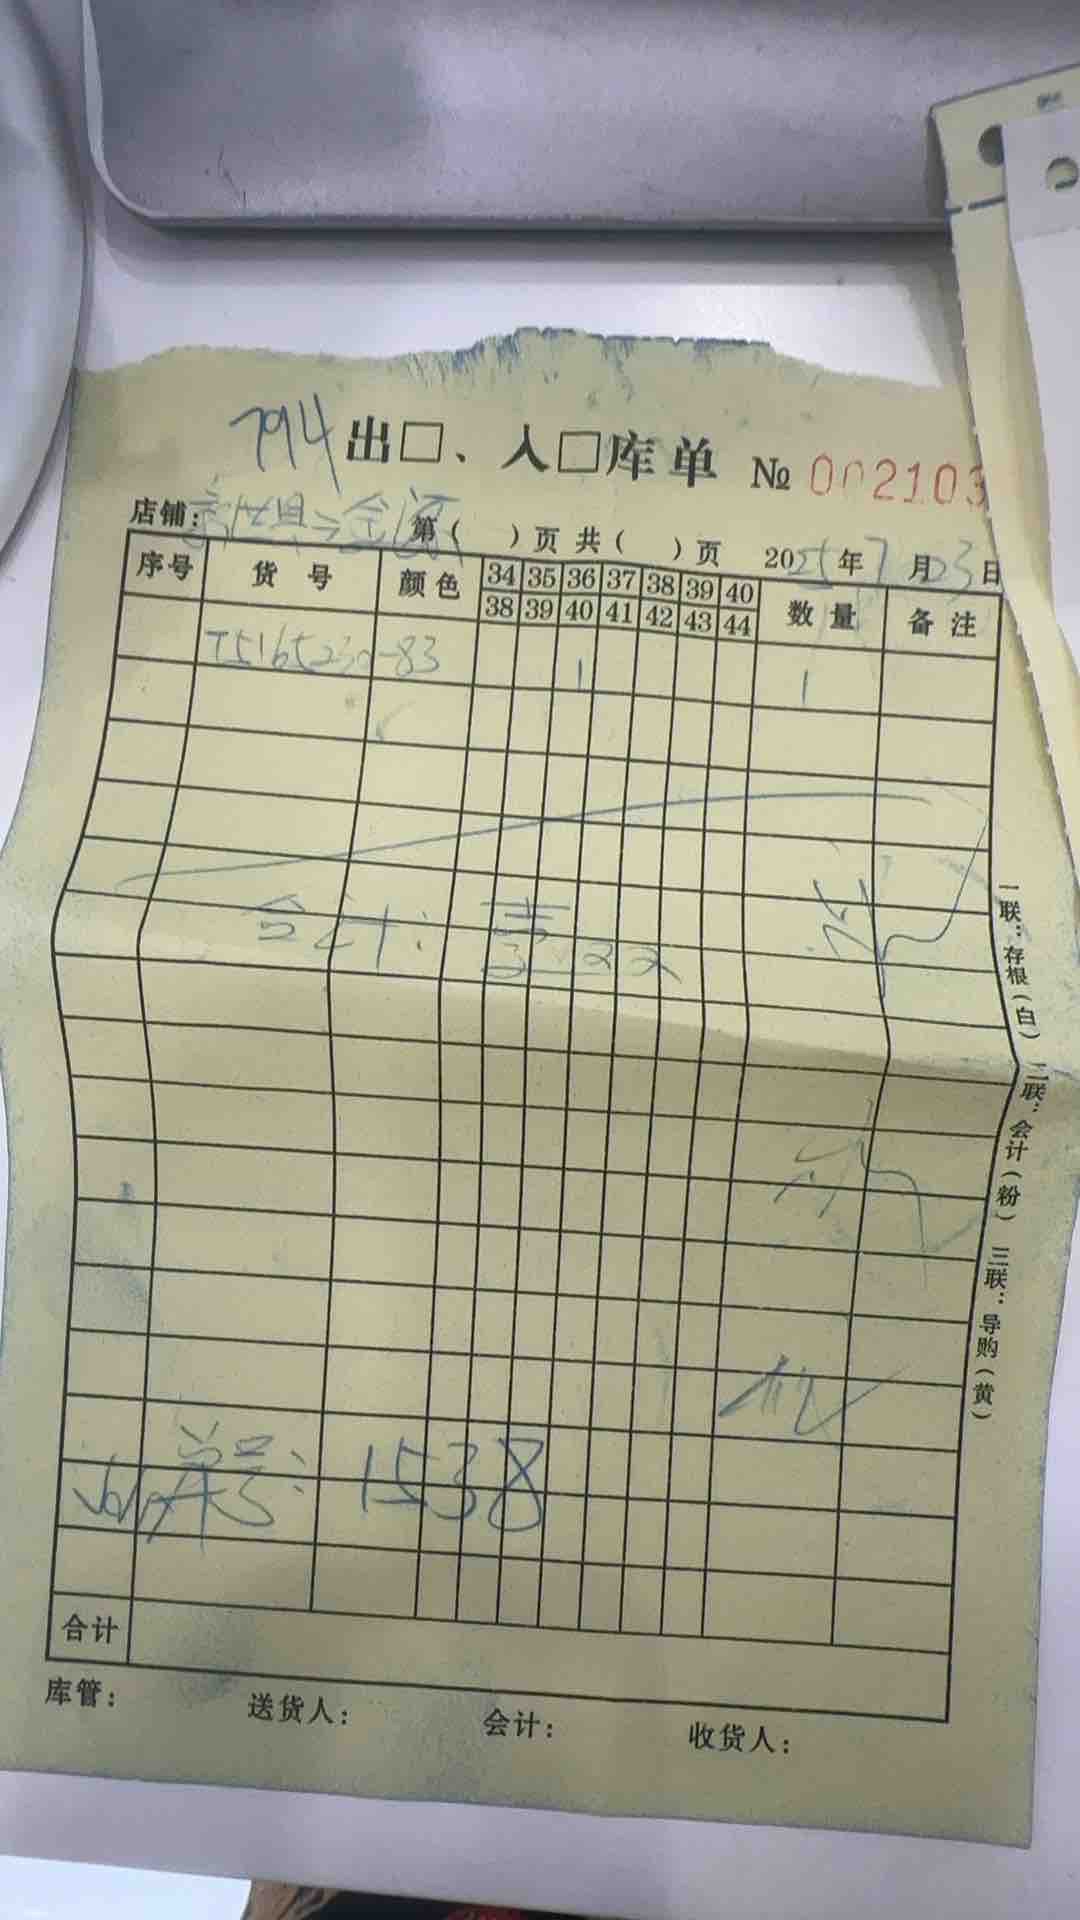 794 出□、入□库单 № 002103
店铺: 第( )页 共( )页 2025年7月23日
序号 货号 颜色 34 35 36 37 38 39 40 数量 备注
38 39 40 41 42 43 44
T5165230-83 1 1
合计:
单号: 1538
合计
库管: 送货人: 会计: 收货人:
一联:存根(白) 二联:会计(粉) 三联:导购(黄)